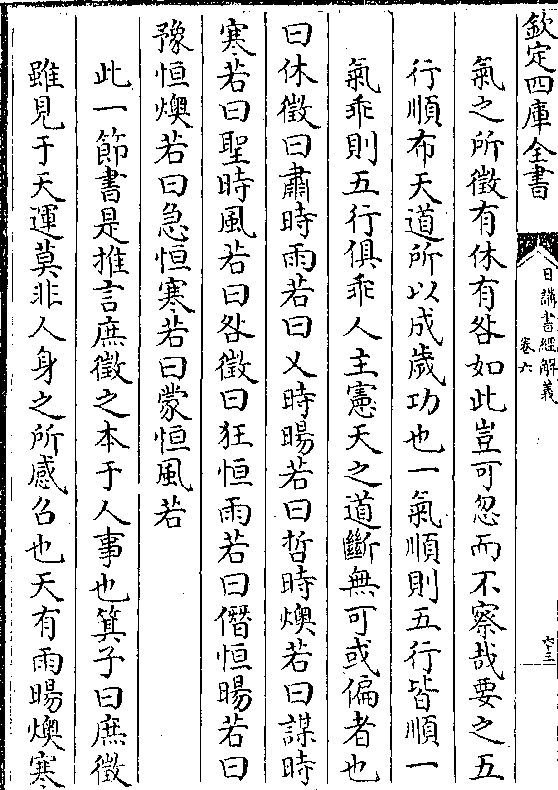 欽定四庫全書
日講書經解義
卷六
六三
氣之所徵有休有咎如此豈可忽而不察哉要之五
行順布天道所以成歲功也一氣順則五行皆順一
氣乖則五行俱乖人主憲天之道斷無可或偏者也
曰休徵曰肅時雨若曰乂時暘若曰哲時燠若曰謀時
寒若曰聖時風若曰咎徵曰狂恒雨若曰僭恒暘若曰
豫恒燠若曰急恒寒若曰蒙恒風若
此一節書是推言庶徵之本于人事也箕子曰庶徵
雖見于天運莫非人身之所感召也天有雨暘燠寒